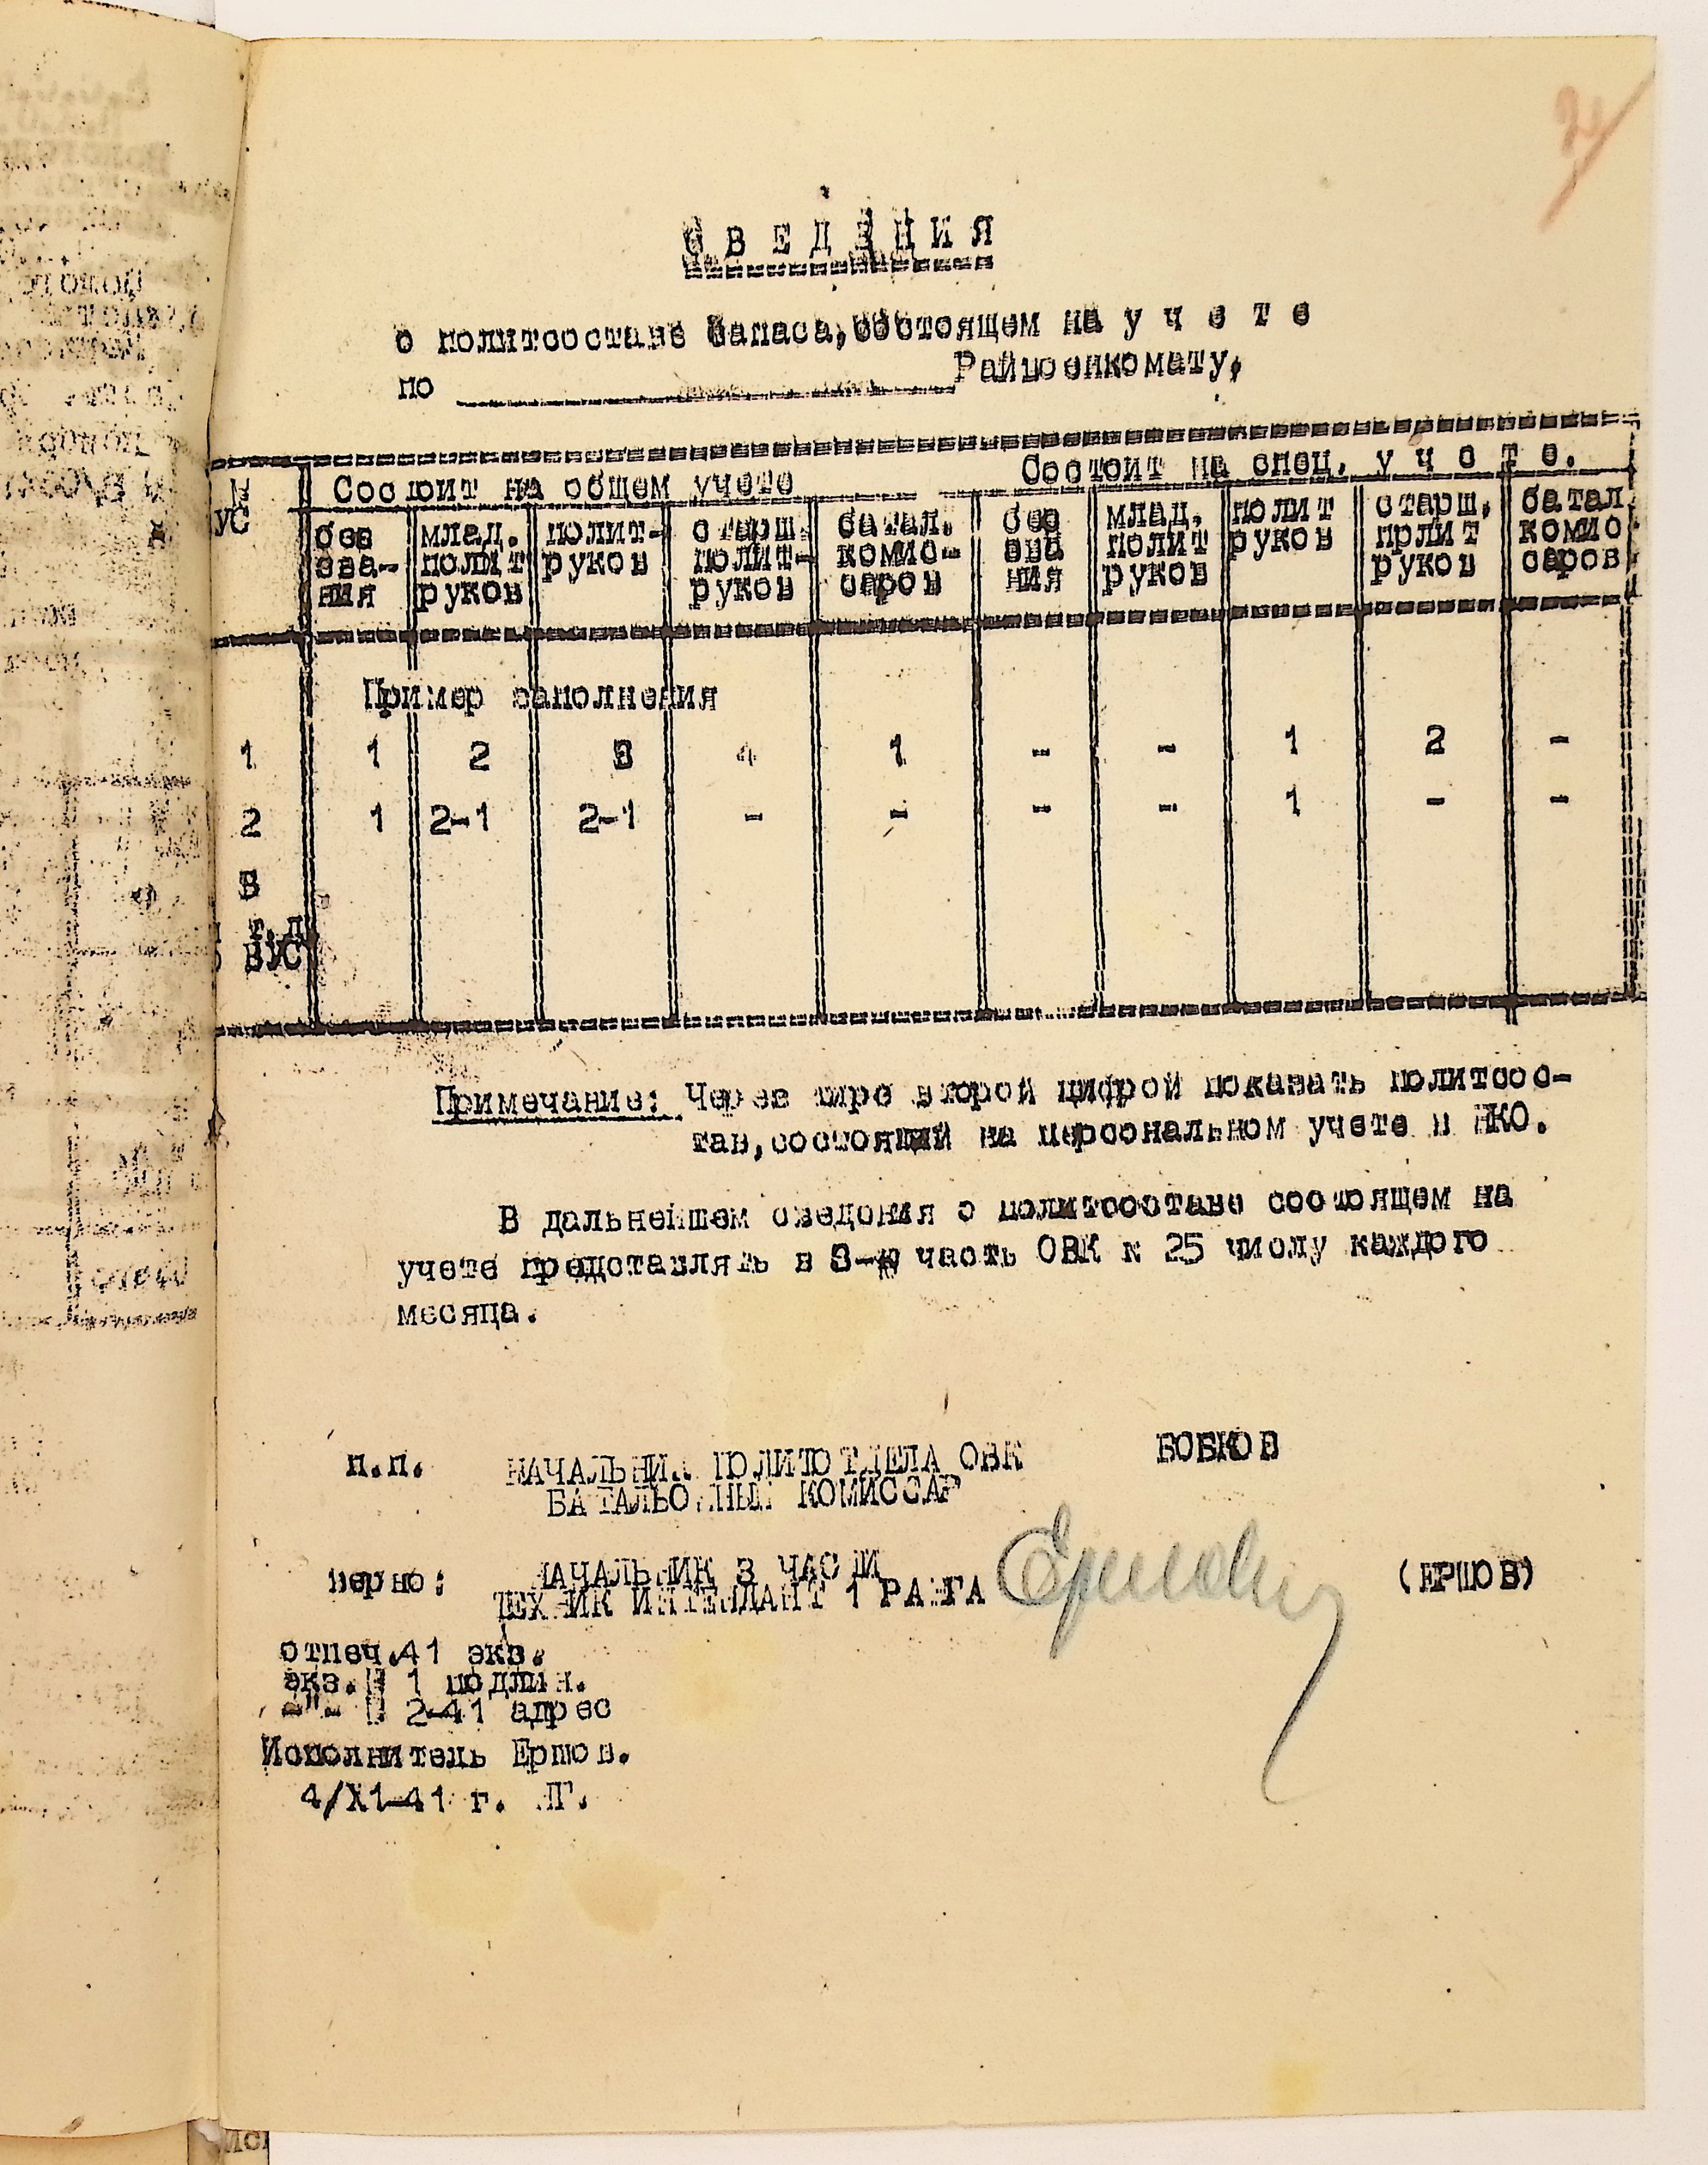 СВЕДЕНИЯ
о политсоставе запаса, состоящем на у ч е т е
по Райвоенкомату.
Состоит на общем учете Состоит на спец. у ч е т е.
N
УС
без зва- ния
млад. полит руков
полит- руков
старш. полит- руков
батал. комис- саров
без зва ния
млад. полит руков
полит руков
старш. прлит руков
батал. комис саров
Пример заполнения
1 1 2 3 4 1 - - 1 2 -
2 1 2-1 2-1 - - - - 1 - -
3
т.д.
ВУС
Примечание: Через тире второй цифрой показать политсос-
тав, состоящий на персональном учете в НКО.
В дальнейшем сведения о политсоставе состоящем на
учете представлять в 3-ю часть ОВК к 25 числу каждого
месяца.
п.п. НАЧАЛЬНИК ПОЛИТОТДЕЛА ОВК БОБКОВ
БАТАЛЬОННЫЙ КОМИССАР
верно: НАЧАЛЬНИК 3 ЧАСТИ
ТЕХНИК ИНТЕНДАНТ 1 РАНГА Ершов (ЕРШОВ)
отпеч.41 экз.
экз. || 1 подлин.
-"- || 2-41 адрес
Исполнитель Ершов.
4/X1-41 г. ПГ.